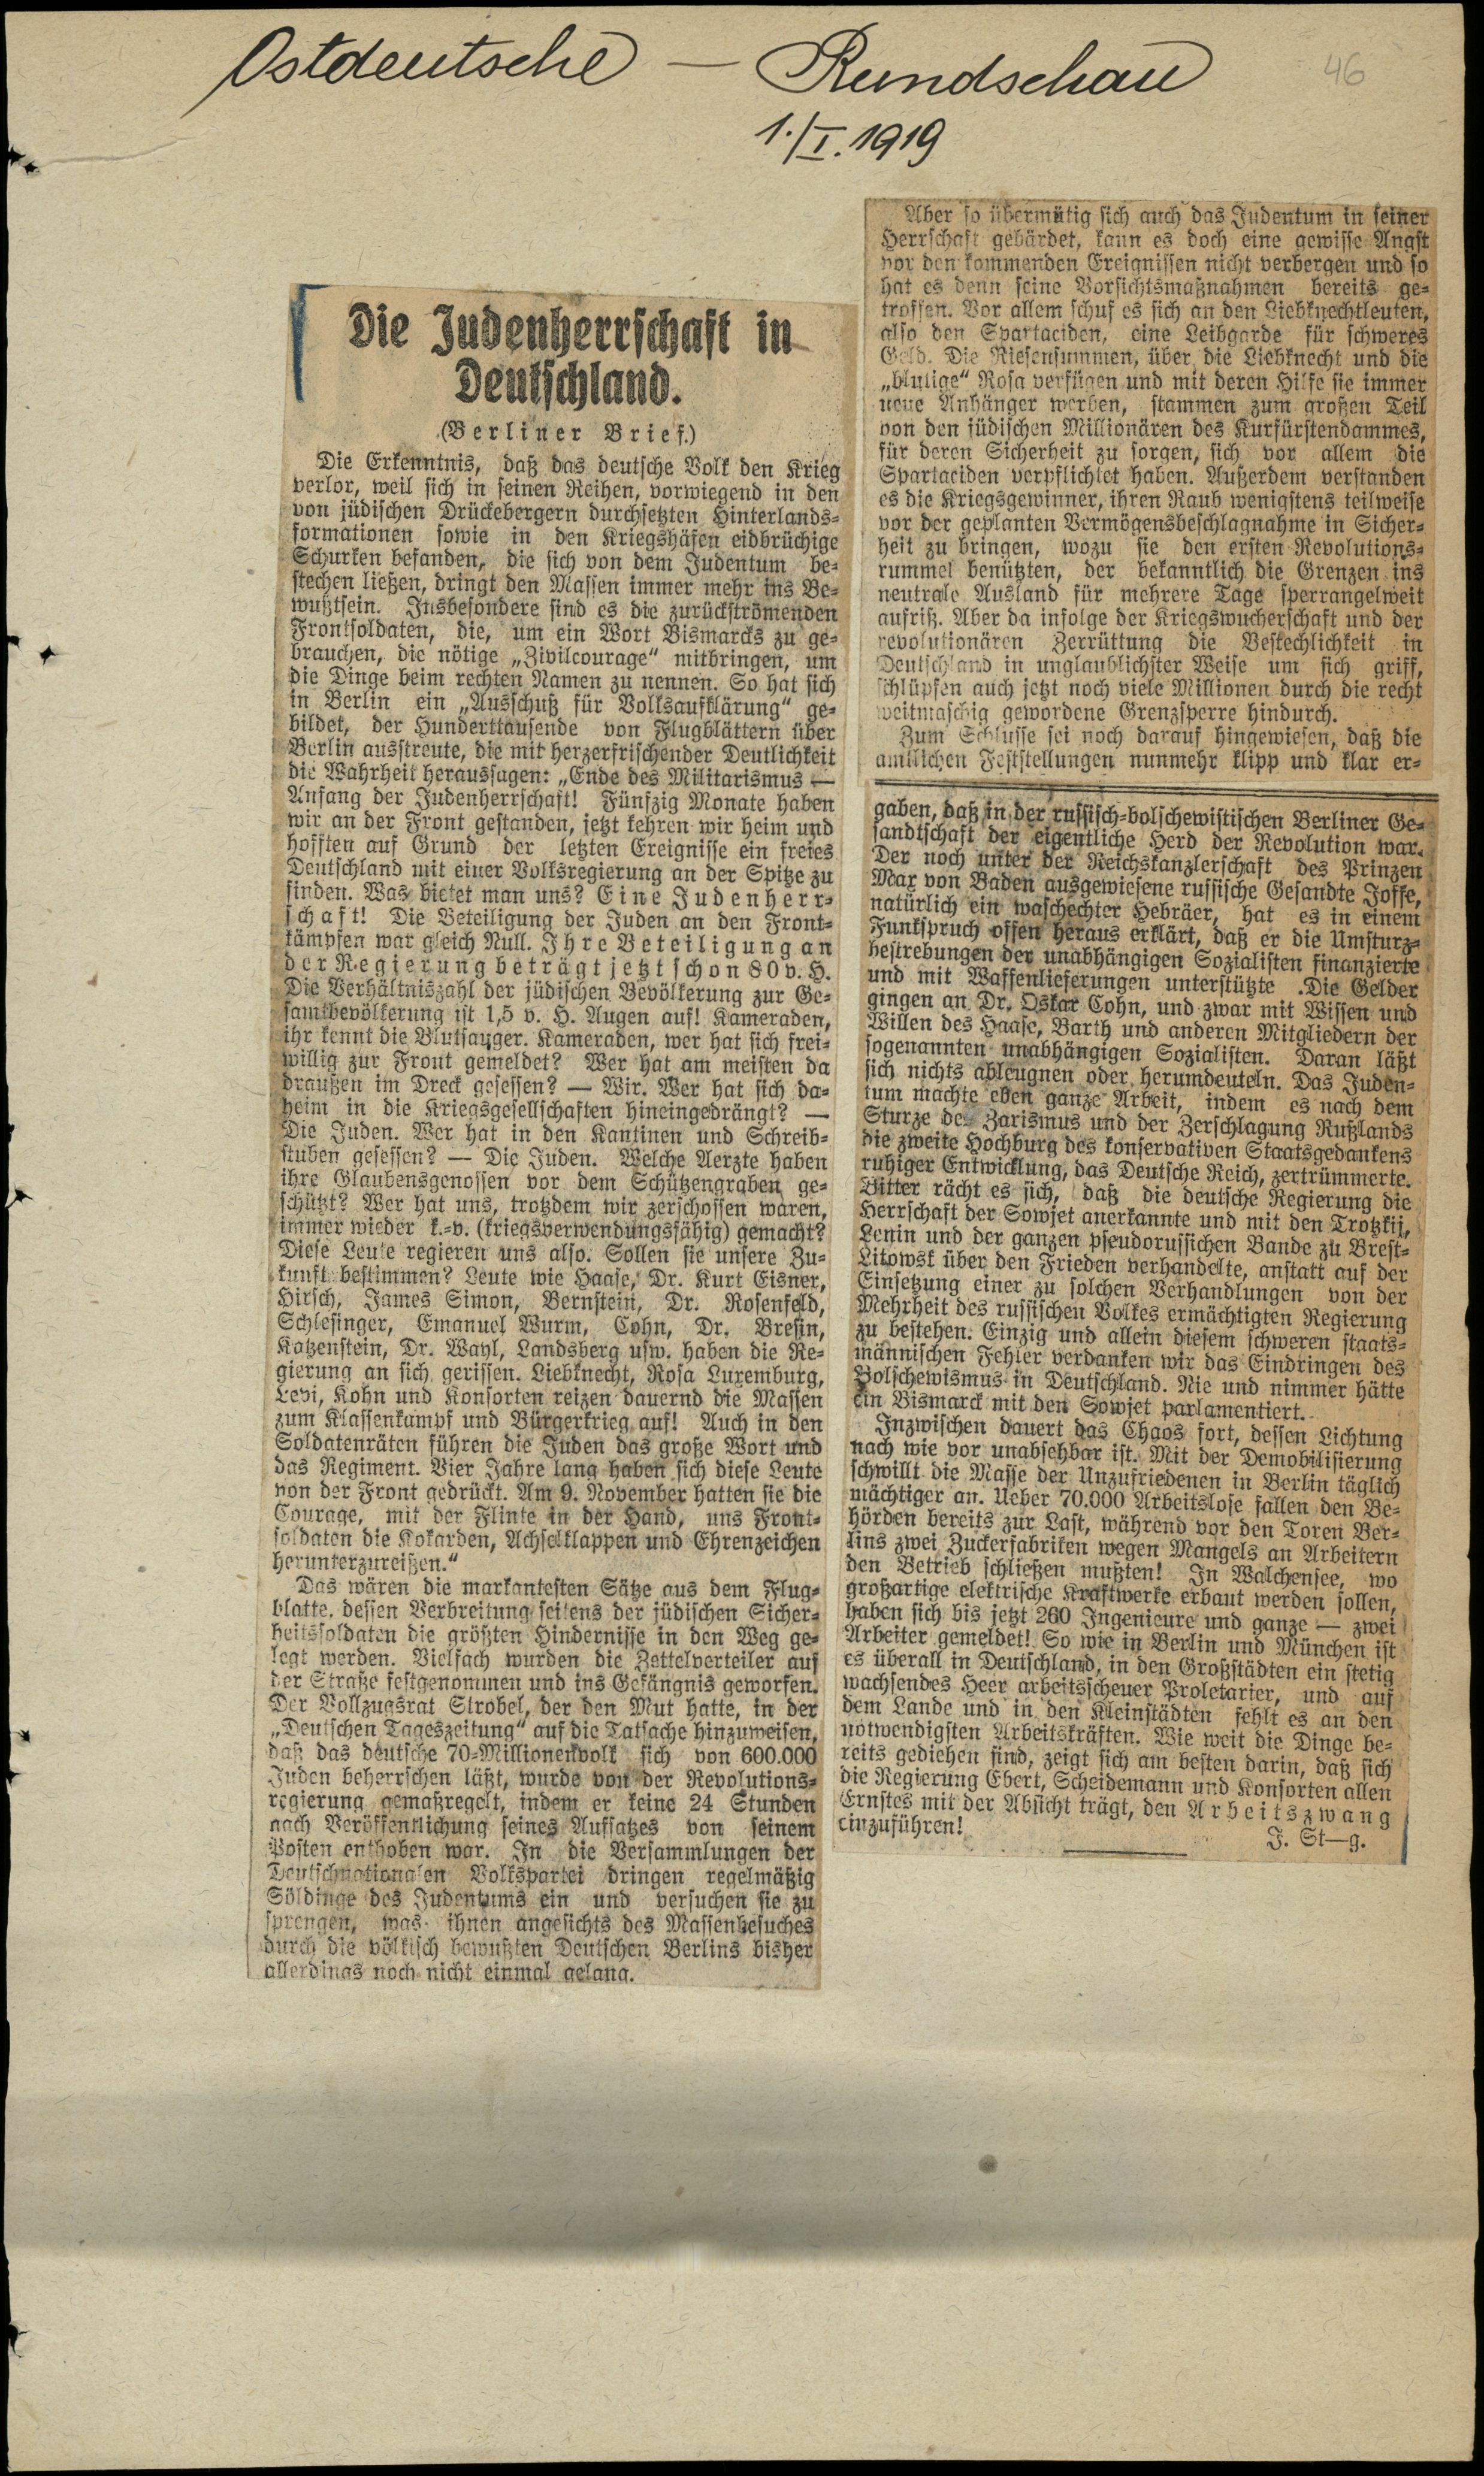 Ostdeutsche — Rundschau
46
1./I. 1919
Die Judenherrschaft in
Deutschland.
(Berliner Brief.)
Die Erkenntnis, daß das deutsche Volk den Krieg
verlor, weil sich in seinen Reihen, vorwiegend in den
von jüdischen Drückebergern durchsetzten Hinterlands-
formationen sowie in den Kriegshäfen eidbrüchige
Schurken befanden, die sich von dem Judentum be-
stechen ließen, dringt den Massen immer mehr ins Be-
wußtsein. Insbesondere sind es die zurückströmenden
Frontsoldaten, die, um ein Wort Bismarcks zu ge-
brauchen, die nötige „Zivilcourage“ mitbringen, um
die Dinge beim rechten Namen zu nennen. So hat sich
in Berlin ein „Ausschuß für Volksaufklärung“ ge-
bildet, der Hunderttausende von Flugblättern über
Berlin ausstreute, die mit herzerfrischender Deutlichkeit
die Wahrheit heraussagen: „Ende des Militarismus —
Anfang der Judenherrschaft! Fünfzig Monate haben
wir an der Front gestanden, jetzt kehren wir heim und
hofften auf Grund der letzten Ereignisse ein freies
Deutschland mit einer Volksregierung an der Spitze zu
finden. Was bietet man uns? Eine Judenherr-
schaft! Die Beteiligung der Juden an den Front-
kämpfen war gleich Null. Ihre Beteiligung an
der Regierung beträgt jetzt schon 80 v. H.
Die Verhältniszahl der jüdischen Bevölkerung zur Ge-
samtbevölkerung ist 1,5 v. H. Augen auf! Kameraden,
ihr kennt die Blutsauger. Kameraden, wer hat sich frei-
willig zur Front gemeldet? Wer hat am meisten da
draußen im Dreck gesessen? — Wir. Wer hat sich da-
heim in die Kriegsgesellschaften hineingedrängt? —
Die Juden. Wer hat in den Kantinen und Schreib-
stuben gesessen? — Die Juden. Welche Aerzte haben
ihre Glaubensgenossen vor dem Schützengraben ge-
schützt? Wer hat uns, trotzdem wir zerschossen waren,
immer wieder k.-v. (kriegsverwendungsfähig) gemacht?
Diese Leute regieren uns also. Sollen sie unsere Zu-
kunft bestimmen? Leute wie Haase, Dr. Kurt Eisner,
Hirsch, James Simon, Bernstein, Dr. Rosenfeld,
Schlesinger, Emanuel Wurm, Cohn, Dr. Bresin,
Katzenstein, Dr. Wayl, Landsberg usw. haben die Re-
gierung an sich gerissen. Liebknecht, Rosa Luxemburg,
Levi, Kohn und Konsorten reizen dauernd die Massen
zum Klassenkampf und Bürgerkrieg auf! Auch in den
Soldatenräten führen die Juden das große Wort und
das Regiment. Vier Jahre lang haben sich diese Leute
von der Front gedrückt. Am 9. November hatten sie die
Courage, mit der Flinte in der Hand, uns Front-
soldaten die Kokarden, Achselklappen und Ehrenzeichen
herunterzureißen.“
Das wären die markantesten Sätze aus dem Flug-
blatte, dessen Verbreitung seitens der jüdischen Sicher-
heitssoldaten die größten Hindernisse in den Weg ge-
legt werden. Vielfach wurden die Zettelverteiler auf
der Straße festgenommen und ins Gefängnis geworfen.
Der Vollzugsrat Strobel, der den Mut hatte, in der
„Deutschen Tageszeitung“ auf die Tatsache hinzuweisen,
daß das deutsche 70-Millionenvolk sich von 600.000
Juden beherrschen läßt, wurde von der Revolutions-
regierung gemaßregelt, indem er keine 24 Stunden
nach Veröffentlichung seines Aufsatzes von seinem
Posten enthoben war. In die Versammlungen der
Deutschnationalen Volkspartei dringen regelmäßig
Söldinge des Judentums ein und versuchen sie zu
sprengen, was ihnen angesichts des Massenbesuches
durch die völkisch bewußten Deutschen Berlins bisher
allerdings noch nicht einmal gelang.
Aber so übermütig sich auch das Judentum in seiner
Herrschaft gebärdet, kann es doch eine gewisse Angst
vor den kommenden Ereignissen nicht verbergen und so
hat es denn seine Vorsichtsmaßnahmen bereits ge-
troffen. Vor allem schuf es sich an den Liebknechtleuten,
also den Spartaciden, eine Leibgarde für schweres
Geld. Die Riesensummen, über die Liebknecht und die
„blutige“ Rosa verfügen und mit deren Hilfe sie immer
neue Anhänger werben, stammen zum großen Teil
von den jüdischen Millionären des Kurfürstendammes,
für deren Sicherheit zu sorgen, sich vor allem die
Spartaciden verpflichtet haben. Außerdem verstanden
es die Kriegsgewinner, ihren Raub wenigstens teilweise
vor der geplanten Vermögensbeschlagnahme in Sicher-
heit zu bringen, wozu sie den ersten Revolutions-
rummel benützten, der bekanntlich die Grenzen ins
neutrale Ausland für mehrere Tage sperrangelweit
aufriß. Aber da infolge der Kriegswucherschaft und der
revolutionären Zerrüttung die Bestechlichkeit in
Deutschland in unglaublichster Weise um sich griff,
schlüpfen auch jetzt noch viele Millionen durch die recht
weitmaschig gewordene Grenzsperre hindurch.
Zum Schlusse sei noch darauf hingewiesen, daß die
amtlichen Feststellungen nunmehr klipp und klar er-
gaben, daß in der russisch-bolschewistischen Berliner Ge-
sandtschaft der eigentliche Herd der Revolution war.
Der noch unter der Reichskanzlerschaft des Prinzen
Max von Baden ausgewiesene russische Gesandte Joffe,
natürlich ein waschechter Hebräer, hat es in einem
Funkspruch offen heraus erklärt, daß er die Umsturz-
bestrebungen der unabhängigen Sozialisten finanzierte
und mit Waffenlieferungen unterstützte .Die Gelder
gingen an Dr. Oskar Cohn, und zwar mit Wissen und
Willen des Haase, Barth und anderen Mitgliedern der
sogenannten unabhängigen Sozialisten. Daran läßt
sich nichts ableugnen oder herumdeuteln. Das Juden-
tum machte eben ganze Arbeit, indem es nach dem
Sturze des Zarismus und der Zerschlagung Rußlands
die zweite Hochburg des konservativen Staatsgedankens
ruhiger Entwicklung, das Deutsche Reich, zertrümmerte.
Bitter rächt es sich, daß die deutsche Regierung die
Herrschaft der Sowjet anerkannte und mit den Trotzkij,
Lenin und der ganzen pseudorussichen Bande zu Brest-
Litowsk über den Frieden verhandelte, anstatt auf der
Einsetzung einer zu solchen Verhandlungen von der
Mehrheit des russischen Volkes ermächtigten Regierung
zu bestehen. Einzig und allein diesem schweren staats-
männischen Fehler verdanken wir das Eindringen des
Bolschewismus in Deutschland. Nie und nimmer hätte
ein Bismarck mit den Sowjet parlamentiert.
Inzwischen dauert das Chaos fort, dessen Lichtung
nach wie vor unabsehbar ist. Mit der Demobilisierung
schwillt die Masse der Unzufriedenen in Berlin täglich
mächtiger an. Ueber 70.000 Arbeitslose fallen den Be-
hörden bereits zur Last, während vor den Toren Ber-
lins zwei Zuckerfabriken wegen Mangels an Arbeitern
den Betrieb schließen mußten! In Walchensee, wo
großartige elektrische Kraftwerke erbaut werden sollen,
haben sich bis jetzt 260 Ingenieure und ganze — zwei
Arbeiter gemeldet! So wie in Berlin und München ist
es überall in Deutschland, in den Großstädten ein stetig
wachsendes Heer arbeitsscheuer Proletarier, und auf
dem Lande und in den Kleinstädten fehlt es an den
notwendigsten Arbeitskräften. Wie weit die Dinge be-
reits gediehen sind, zeigt sich am besten darin, daß sich
die Regierung Ebert, Scheidemann und Konsorten allen
Ernstes mit der Absicht trägt, den Arbeitszwang
einzuführen!
J. St—g.